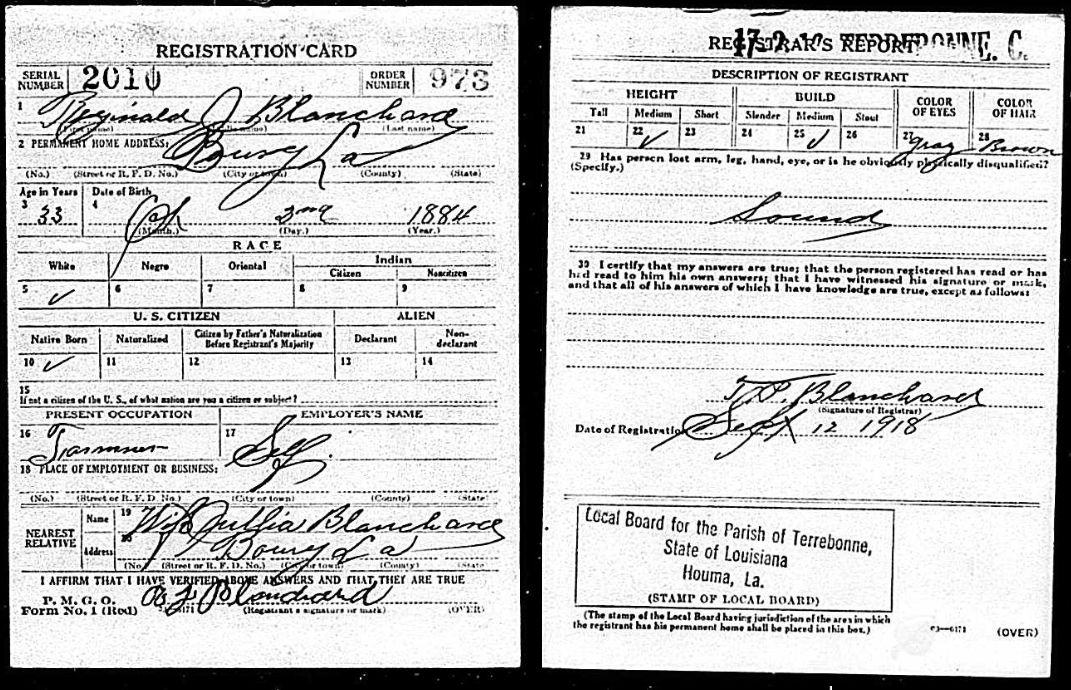 REGISTRATION CARD
SERIAL NUMBER 2010 ORDER NUMBER 973
1 Reginald J Blanchard
(First name) (Middle name) (Last name)
2 PERMANENT HOME ADDRESS:
La
(No.) (Street or R. F. D. No.) (City or town) (County) (State)
Age in Years Date of Birth
3 33 4 Feb 2nd 1884
(Month.) (Day.) (Year.)
RACE
White Negro Oriental Indian
Citizen Noncitizen
5 ✓ 6 7 8 9
U. S. CITIZEN ALIEN
Native Born Naturalized Citizen by Father's Naturalization Before Registrant's Majority Declarant Non-declarant
10 ✓ 11 12 13 14
15
If not a citizen of the U. S., of what nation are you a citizen or subject?
PRESENT OCCUPATION EMPLOYER'S NAME
16 Farmer 17 Self
18 PLACE OF EMPLOYMENT OR BUSINESS:
(No.) (Street or R. F. D. No.) (City or town) (County) (State)
NEAREST RELATIVE Name 19 Wife Jullia Blanchard
Address 20 La
(No.) (Street or R. F. D. No.) (City or town) (County) (State)
I AFFIRM THAT I HAVE VERIFIED ABOVE ANSWERS AND THAT THEY ARE TRUE
P. M. G. O.
Form No. 1 (Red) R J Blanchard
(Registrant's signature or mark) (OVER)
REGISTRAR'S REPORT
TERREBONNE. C.
DESCRIPTION OF REGISTRANT
HEIGHT BUILD COLOR OF EYES COLOR OF HAIR
Tall Medium Short Slender Medium Stout
21 22 ✓ 23 24 25 ✓ 26 27 Gray 28 Brown
29 Has person lost arm, leg, hand, eye, or is he obviously physically disqualified?
(Specify.)
Sound
30 I certify that my answers are true; that the person registered has read or has
had read to him his own answers; that I have witnessed his signature or mark,
and that all of his answers of which I have knowledge are true, except as follows:
T. P. Blanchard
(Signature of Registrar)
Date of Registration Sept 12 1918
Local Board for the Parish of Terrebonne,
State of Louisiana
Houma, La.
(STAMP OF LOCAL BOARD)
(The stamp of the Local Board having jurisdiction of the area in which
the registrant has his permanent home shall be placed in this box.)
03—6171 (OVER)